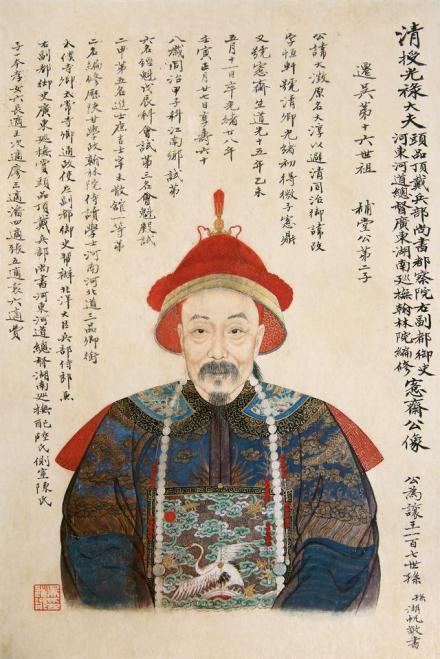 清授光祿大夫
頭品頂戴兵部尚書都察院右副都御史
河東河道總督廣東湖南巡撫翰林院編修
愙齋公像
公為讓王一百七世孫
孫湖帆敬書
遷吳第十六世祖
補堂公第二子
公諱大澂原名大淳以避清同治御諱改
字恆軒號清卿光緒初得微子愙鼎
又號愙齋生道光十五年乙未
五月十一日卒光緒廿八年
壬寅正月廿七日享壽六十
八歲同治甲子科江南鄉試第
六名經魁戊辰科會試第三名會魁殿試
二甲第五名進士庶吉士辛未散館一等第
二名編修歷陝甘學政翰林院侍講學士河南河北道三品卿銜
太僕寺卿太常寺卿通政使左副都御史幫辦北洋大臣兵部侍郎兼
右副都御史廣東巡撫頭品頂戴兵部尚書河東河道總督湖南巡撫配陸氏側室陳氏
子一本孝女六長適王次適廖三適潘四適張五適袁六適費